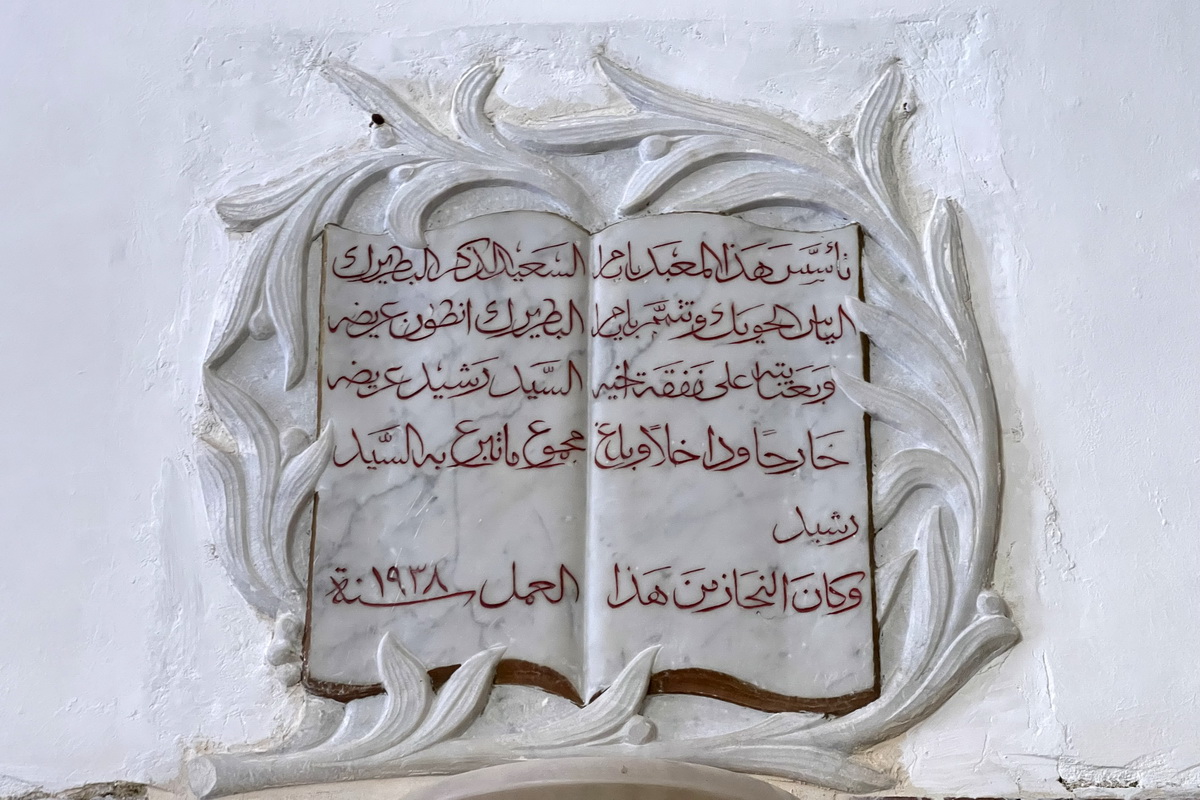 تأسَّسَ هَذا المعبَد بأمر السَعيد الذكر البطريرك
الياس الحويك وتتمَّم بأمر البطريرك انطون عريضه
وَبعَنايته على نفقة اخيه السَّيد رَشيد عريضه
خَارجًا وداخلاً وبلغ مجموع ماتبرع به السَّيد
رشيد
وكانَ النجَاز منَ هَذا العمل سنة ١٩٣٨